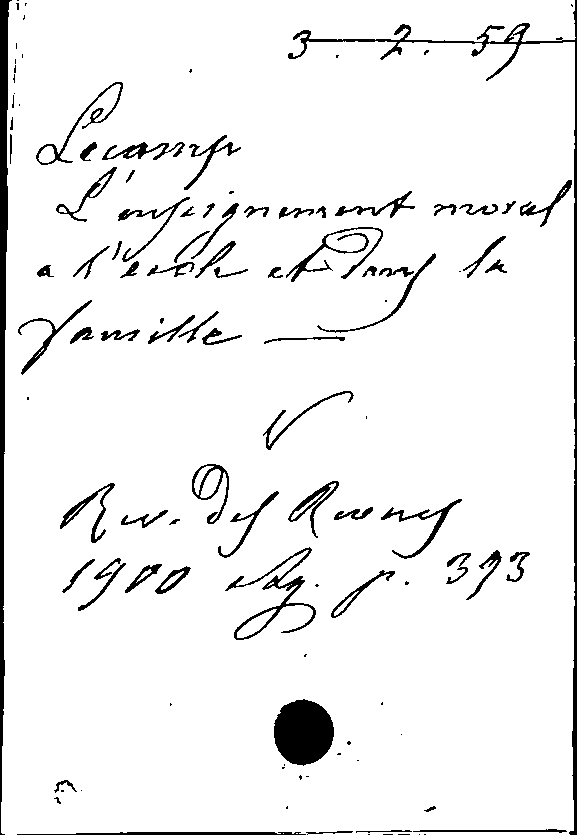 3. 2. 59
Lecamp
L'enseignement moral
a l'ecole et dans la
famille —
V
Rev. des Revues
1900 p. 393